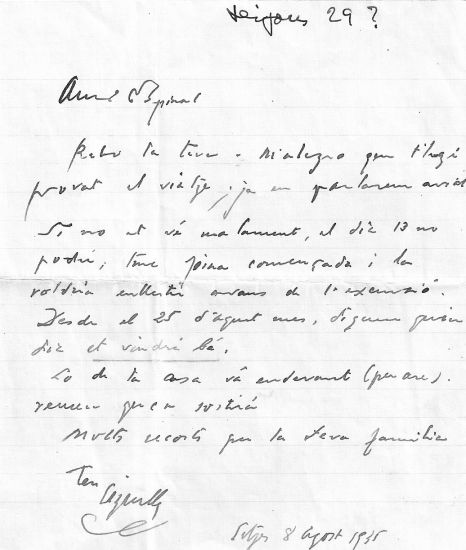 dijous 29?
Amic Espinal
Rebo la teva. M'alegro que t'hagi
provat el viatje, ja en parlarem aviat
Si no et vé malament, el dia 13 no
podré; tinc feina començada i la
voldria enllestir avans de l'excursió.
Desde el 25 d'aquest mes, diguem quin
dia et vindrà bé.
Lo de la casa vá endevant (per ara).
veurem que en sortirá
Molts recorts per la teva familia
Teu
Sitges 8 Agost 1935